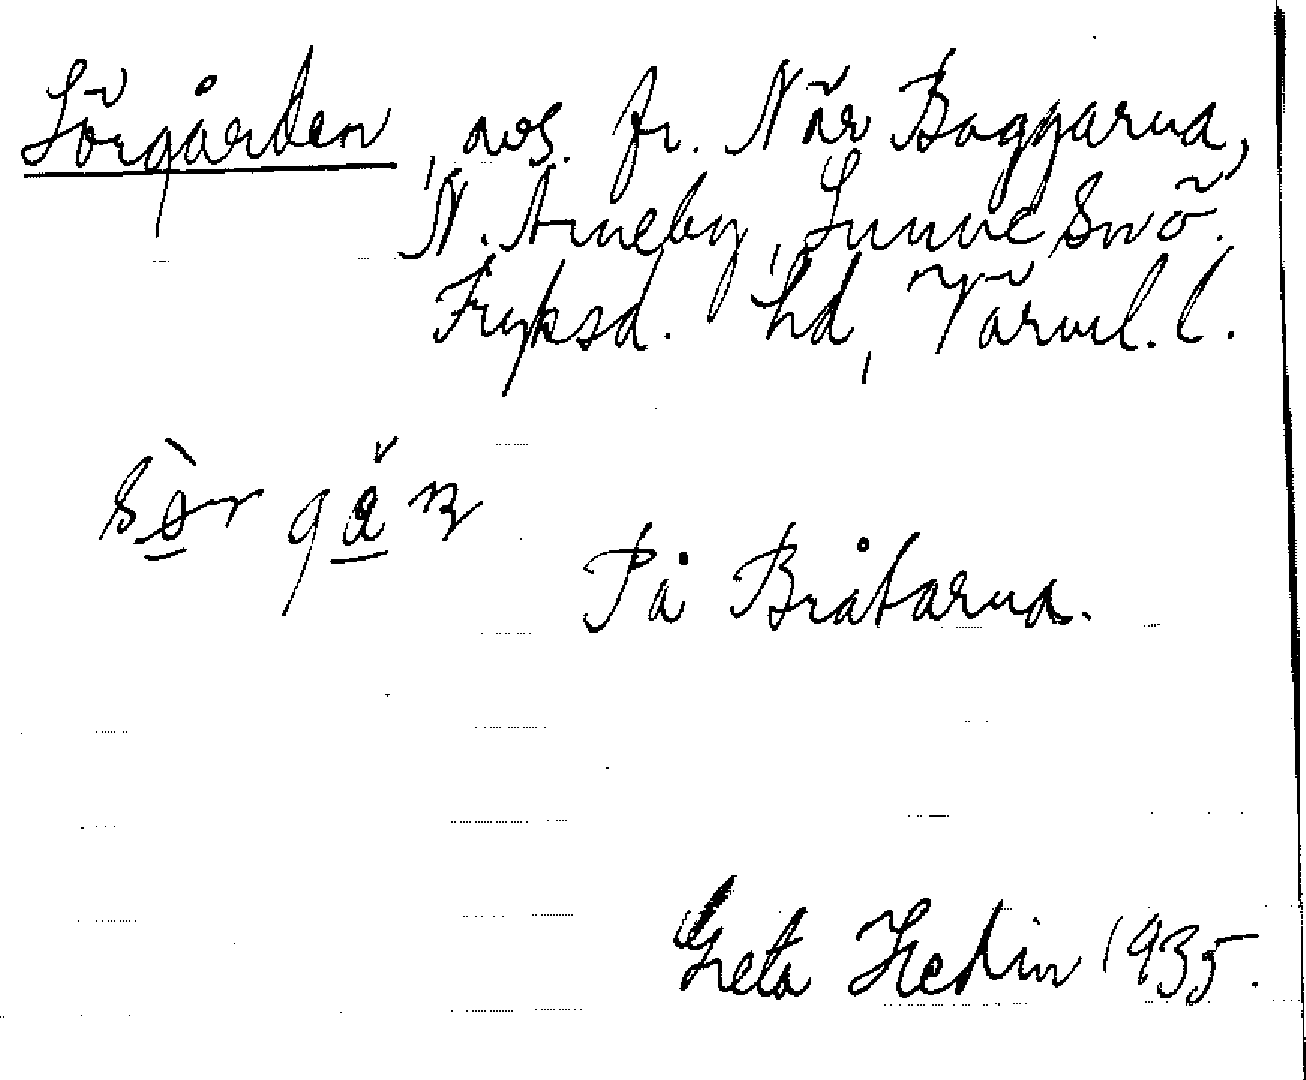 Sörgården, avs. fr. När Baggarud,
N. Arneby, Sunne Snö.
Fryksd. hd, Värml. l.
På Bråtarud.
Greta Hedin 1935.